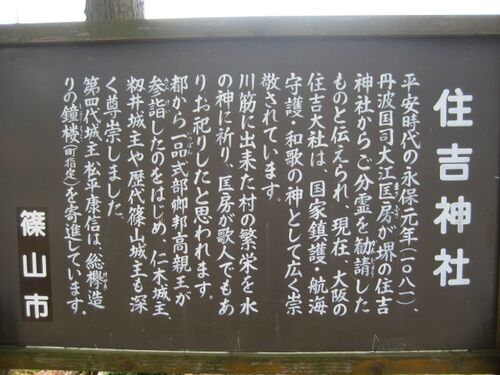 住吉神社
平安時代の永保元年(一〇八一)、
丹波国司大江匡房が堺の住吉
神社からご分霊を勧請した
ものと伝えられ、現在、大阪の
住吉大社は、国家鎮護・航海
守護・和歌の神として広く崇
敬されています。
川筋に出来た村の繁栄を水
の神に祈り、匡房が歌人でもあ
りお祀りしたと思われます。
都から一品式部卿邦高親王が
参詣したのをはじめ、仁木城主、
籾井城主や歴代篠山城主も深
く尊崇しました。
第四代城主松平康信は、総欅造
りの鐘楼(町指定)を寄進しています。
篠山市